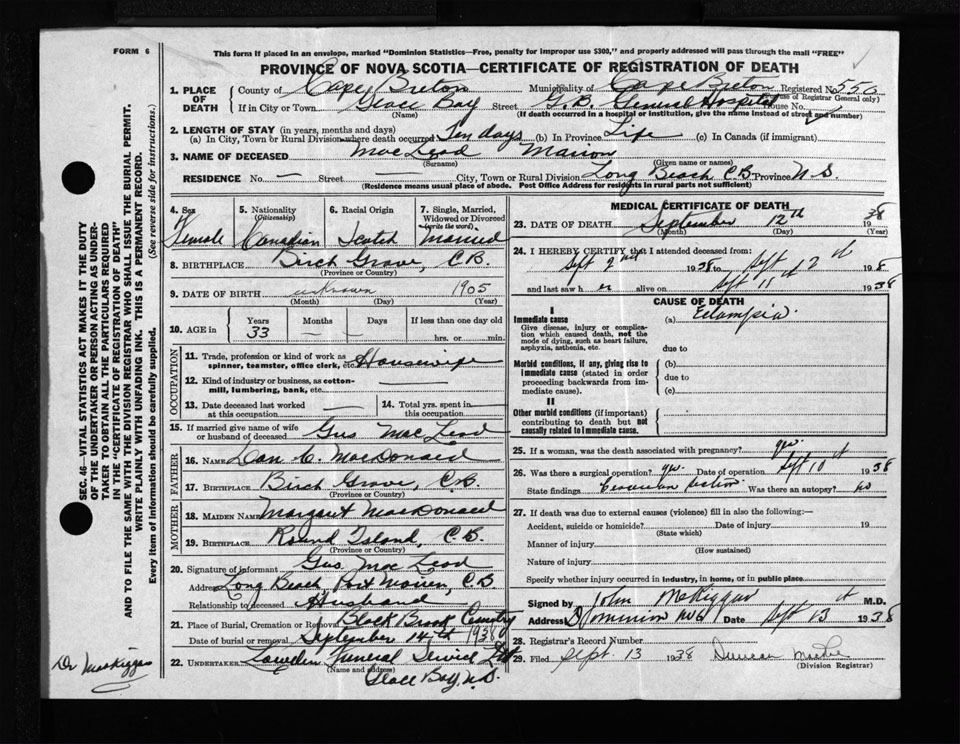 FORM 6
This form if placed in an envelope, marked "Dominion Statistics—Free, penalty for improper use $300," and properly addressed will pass through the mail "FREE"
PROVINCE OF NOVA SCOTIA—CERTIFICATE OF REGISTRATION OF DEATH
1. PLACE OF DEATH County of Cape Breton Municipality of Cape Breton Registered No. 550
(Use of Registrar General only)
If in City or Town Glace Bay Street G.B. General Hospital House No.
(Name) (If death occurred in a hospital or institution, give the name instead of street and number)
2. LENGTH OF STAY (in years, months and days)
(a) In City, Town or Rural Division where death occurred Ten days (b) In Province Life (c) In Canada (if immigrant)
3. NAME OF DECEASED MacLeod Marion
(Surname) (Given name or names)
RESIDENCE No. — Street — City, Town or Rural Division Long Beach C.B. Province N.S.
(Residence means usual place of abode. Post Office Address for residents in rural parts not sufficient)
4. Sex Female
5. Nationality (Citizenship) Canadian
6. Racial Origin Scotch
7. Single, Married, Widowed or Divorced (write the word) Married
8. BIRTHPLACE Birch Grove, C.B.
(Province or Country)
9. DATE OF BIRTH unknown 1905
(Month) (Day) (Year)
10. AGE in Years 33 Months — Days — If less than one day old hrs. or min.
OCCUPATION
11. Trade, profession or kind of work as spinner, teamster, office clerk, etc. Housewife
12. Kind of industry or business, as cotton-mill, lumbering, bank, etc. —
13. Date deceased last worked at this occupation —
14. Total yrs. spent in this occupation —
15. If married give name of wife or husband of deceased Gus MacLeod
FATHER
16. NAME Dan C. MacDonald
17. BIRTHPLACE Birch Grove, C.B.
(Province or Country)
MOTHER
18. MAIDEN NAME Margaret MacDonald
19. BIRTHPLACE Round Island, C.B.
(Province or Country)
20. Signature of informant Gus MacLeod
Address Long Beach, Port Morien, C.B
Relationship to deceased Husband
21. Place of Burial, Cremation or Removal Black Brook Cemetry
Date of burial or removal September 14th 1938
22. UNDERTAKER Lowden Funeral Service Ltd
(Name and address)
Glace Bay, N.S.
MEDICAL CERTIFICATE OF DEATH
23. DATE OF DEATH September 12th 1938
(Month) (Day) (Year)
24. I HEREBY CERTIFY that I attended deceased from:
Sept 1938 to Sept 12th 1938
and last saw her alive on Sept 11th 1938
CAUSE OF DEATH
I
Immediate cause
Give disease, injury or complication which caused death, not the mode of dying, such as heart failure, asphyxia, asthenia, etc.
(a) Eclampsia.
due to
Morbid conditions, if any, giving rise to immediate cause (stated in order proceeding backwards from immediate cause).
(b)
due to
(c)
II
Other morbid conditions (if important) contributing to death but not causally related to immediate cause.
25. If a woman, was the death associated with pregnancy? yes.
26. Was there a surgical operation? yes. Date of operation Sept 10th 1938
State findings Ceasarian Section. Was there an autopsy? no
27. If death was due to external causes (violence) fill in also the following:—
Accident, suicide or homicide? Date of injury 19
(State which)
Manner of injury
(How sustained)
Nature of injury
Specify whether injury occurred in industry, in home, or in public place
Signed by John McKiggan M.D.
Address Dominion No 6 Date Sept 13th 1938
28. Registrar's Record Number
29. Filed Sept. 13 1938 Duncan
(Division Registrar)
SEC. 46—VITAL STATISTICS ACT MAKES IT THE DUTY
OF THE UNDERTAKER OR PERSON ACTING AS UNDERTAKER TO OBTAIN ALL THE PARTICULARS REQUIRED
IN THE "CERTIFICATE OF REGISTRATION OF DEATH"
AND TO FILE THE SAME WITH THE DIVISION REGISTRAR WHO SHALL ISSUE THE BURIAL PERMIT.
WRITE PLAINLY WITH UNFADING INK. THIS IS A PERMANENT RECORD.
Every item of information should be carefully supplied. (See reverse side for instructions.)
Dr MacKiggan